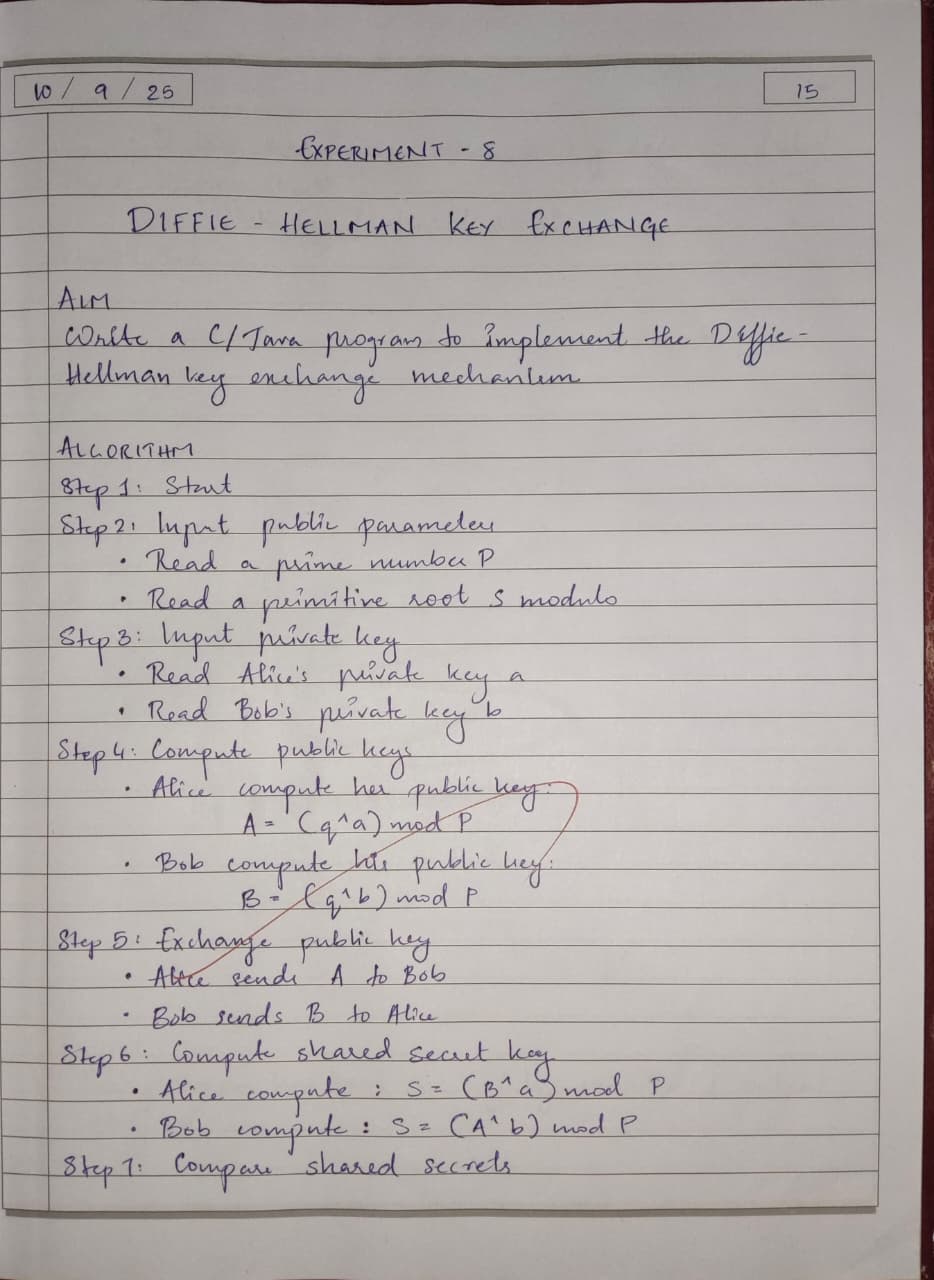 10 / 9 / 25
15
EXPERIMENT - 8
DIFFIE - HELLMAN KEY EXCHANGE
AIM
Write a C/Java program to implement the Diffie-
Hellman key exchange mechanism
ALGORITHM
Step 1: Start
Step 2: Input public parameters
• Read a prime number P
• Read a primitive root S modulo
Step 3: Input private key
• Read Alice's private key a
• Read Bob's private key b
Step 4: Compute public keys
• Alice compute her public key:
A = (q^a) mod P
• Bob compute his public key:
B = (q^b) mod P
Step 5: Exchange public key
• Alice sends A to Bob
• Bob sends B to Alice
Step 6: Compute shared secret key
• Alice compute : S = (B^a) mod P
• Bob compute : S = (A^b) mod P
Step 7: Compare shared secrets